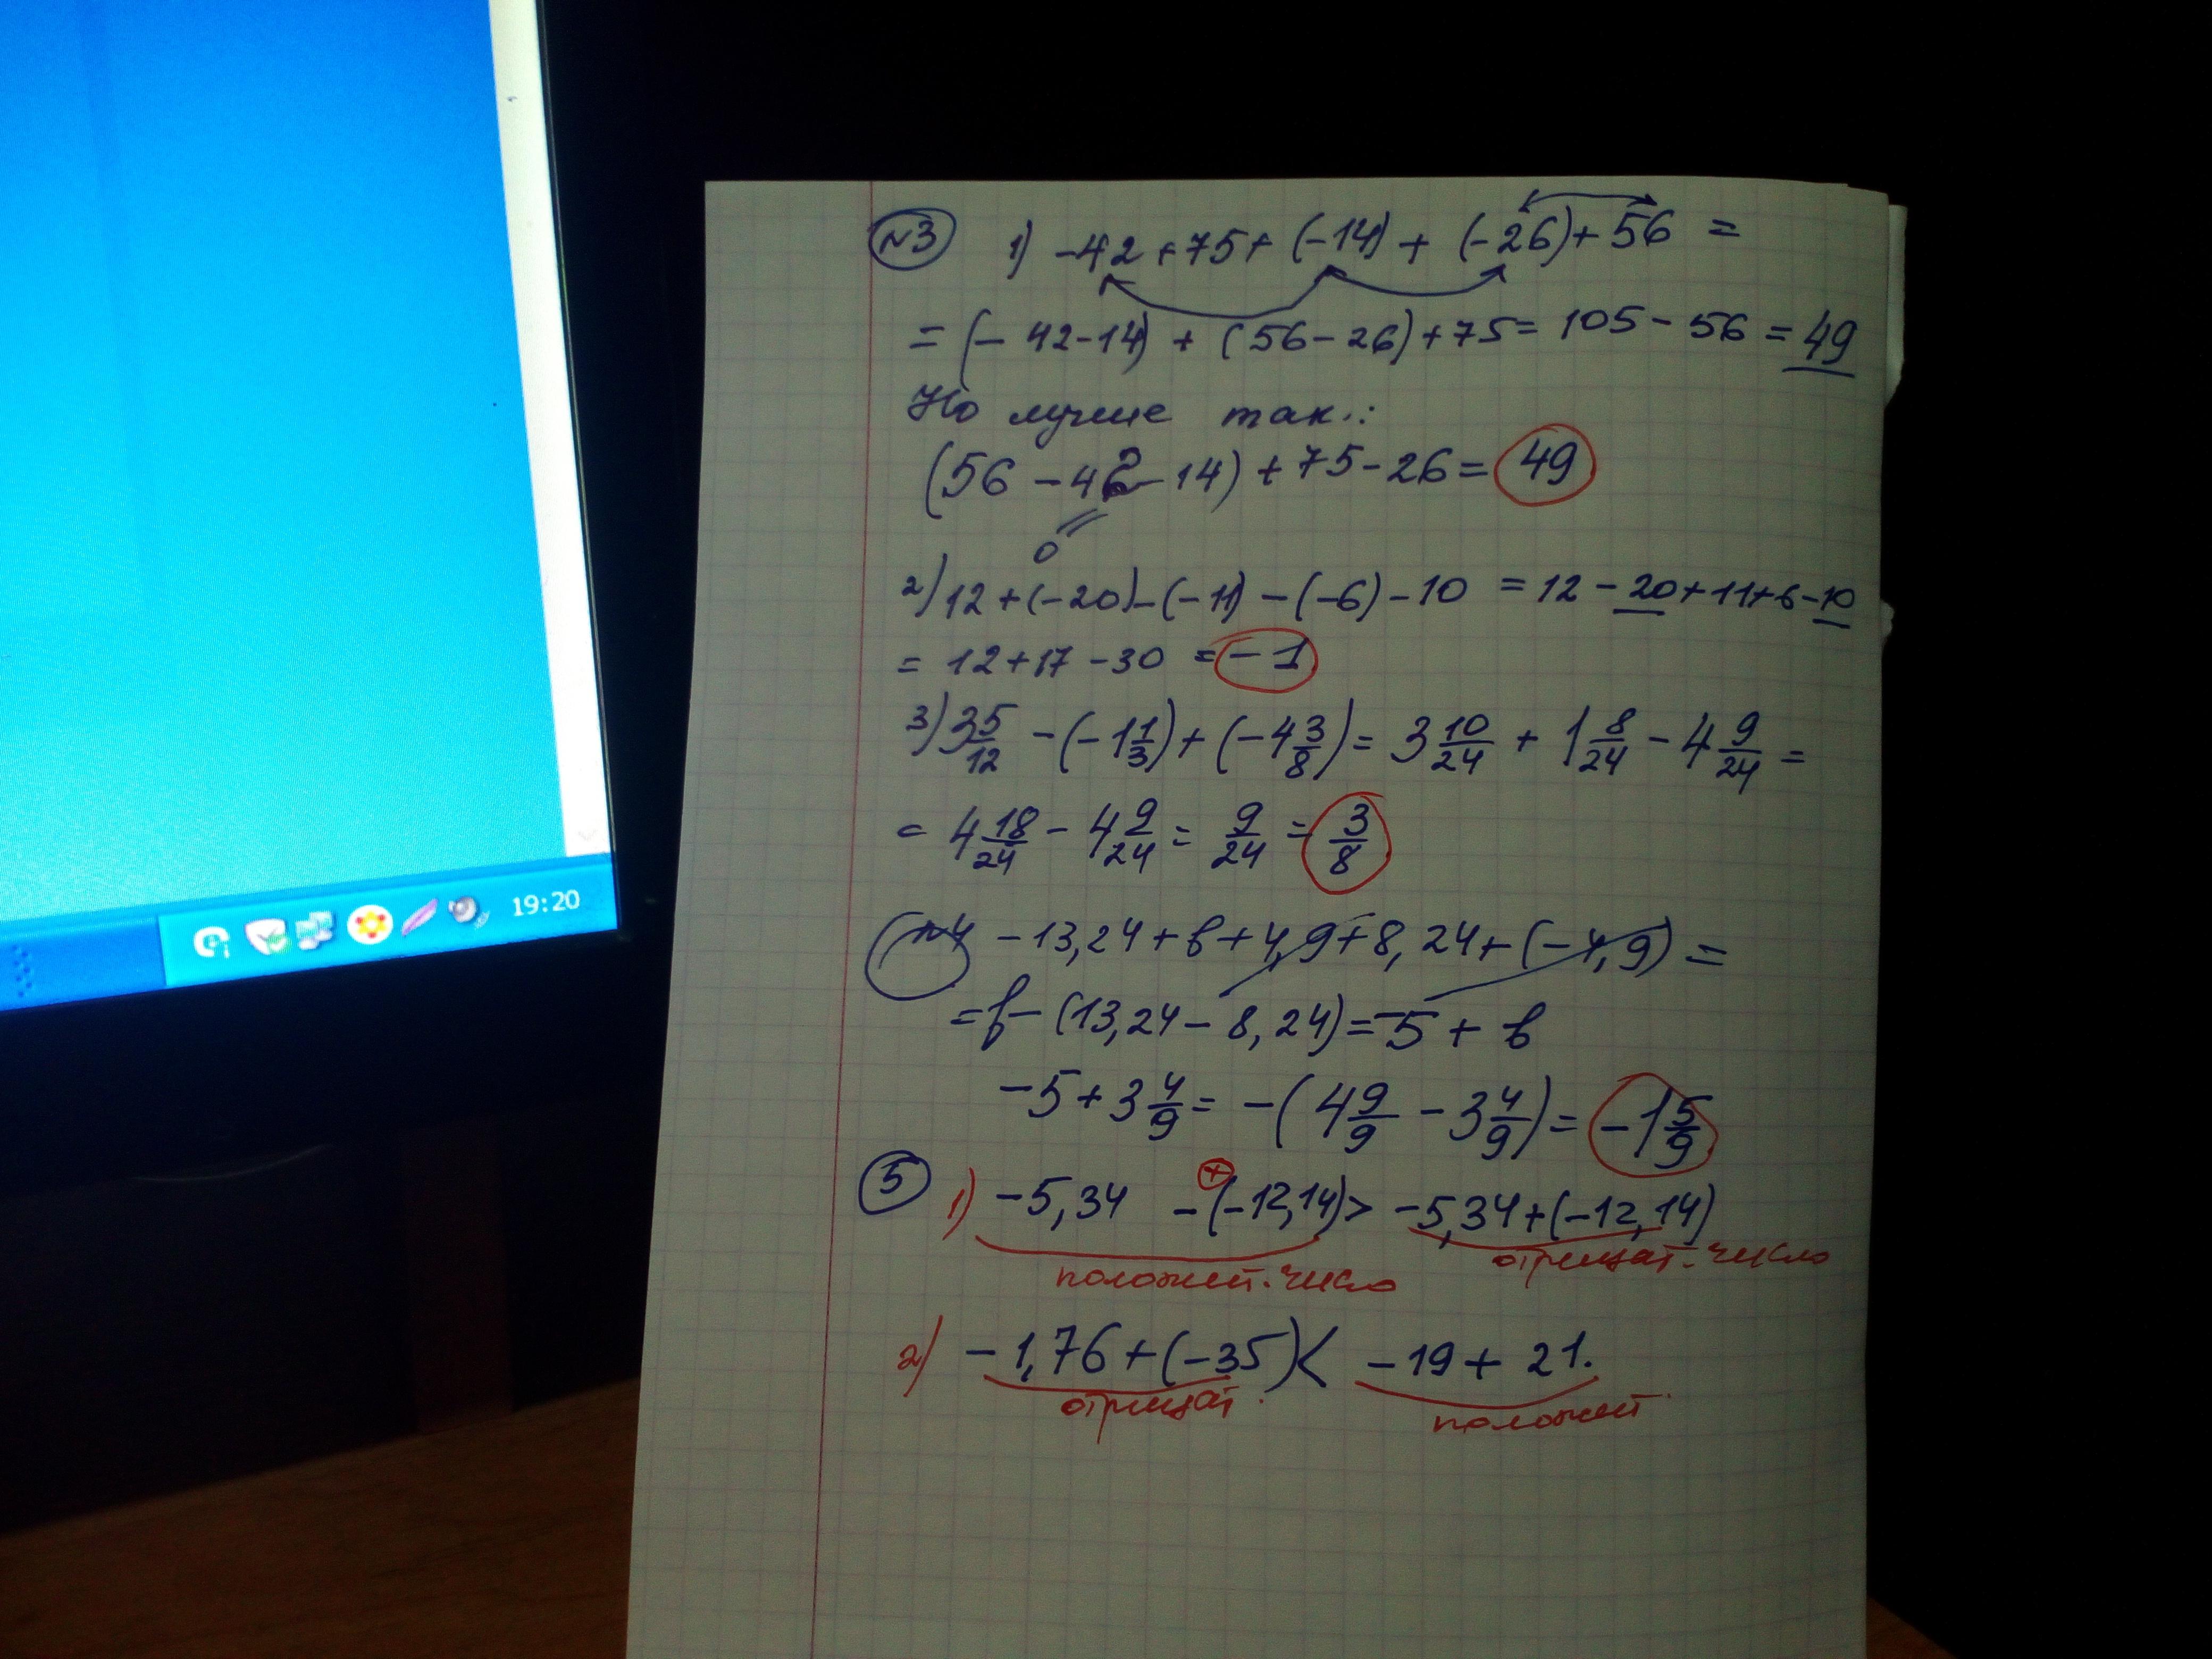 19:20
№3 1) -42+75+(-14)+(-26)+56 =
= (-42-14)+(56-26)+75= 105-56 = 49
Но лучше так.:
(56-42-14)+75-26= 49
0
2) 12+(-20)-(-11)-(-6)-10 = 12-20+11+6-10
= 12+17-30 = -1
3) 3 5/12 -(-1 1/3)+(-4 3/8)= 3 10/24 + 1 8/24 - 4 9/24 =
= 4 18/24 - 4 9/24 = 9/24 = 3/8
№4 -13,24+в+4,9+8,24+(-4,9)=
=в-(13,24-8,24)=-5+в
-5+3 4/9= -(4 9/9 -3 4/9)= -1 5/9
+
5 1) -5,34 -(-12,14)> -5,34+(-12,14)
положит. число отрицат. число
2) -1,76+(-35)< -19+21.
отрицат. положит